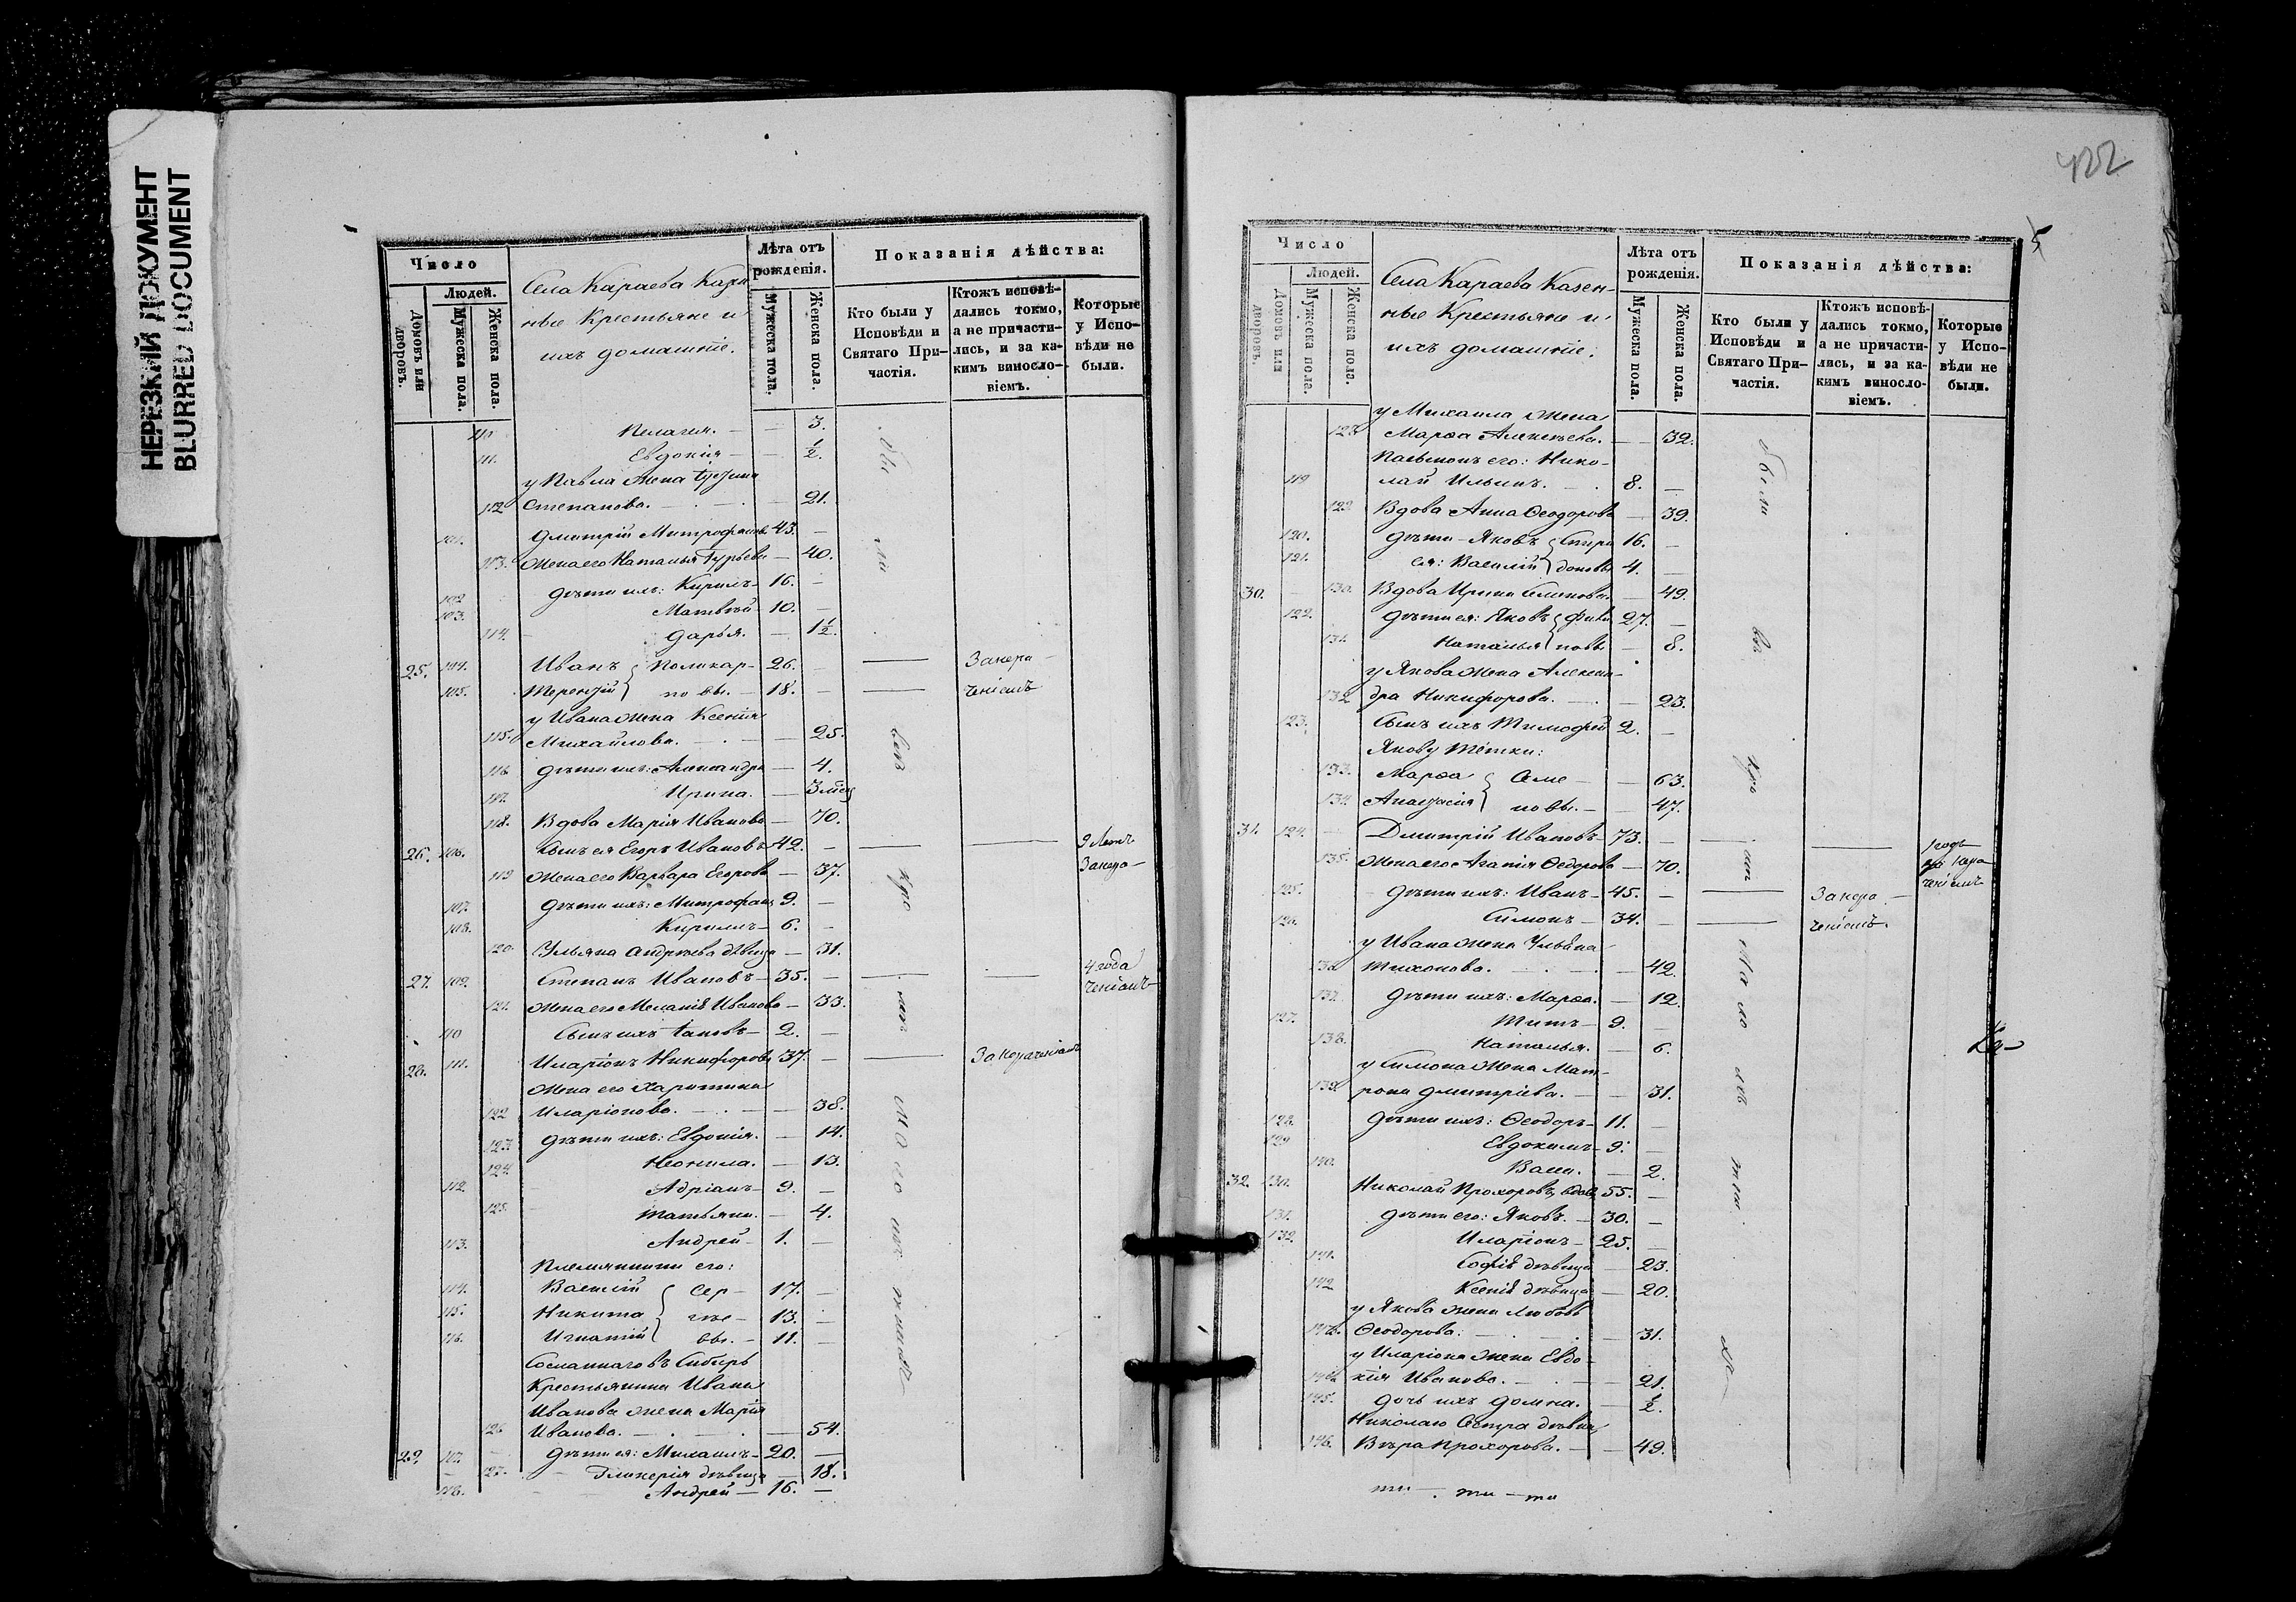 НЕРЕЗКИЙ ДОКУМЕНТ
BLURRED DOCUMENT
Число
Людей.
Домовъ или дворовъ.
Мужеска пола.
Женска пола.
Села Караева Казен-
ные Крестьяне и
ихъ домашніе.
Лѣта отъ рожденія.
Мужеска пола.
Женска пола.
Показанія дѣйства:
Кто были у Исповѣди и Святаго При-частія.
Ктожъ исповѣ-дались токмо, а не причасти-лись, и за ка-кимъ винosло-віемъ.
Которые у Испо-вѣди не были.
110 Пелагея. — — 3.
111. Евдокія — — ½.
у Павла жена
112 Степанова. — — 21.
101. Дмитрій Митрофановъ 43. —
113. Жена его Наталья Гурьева — 40.
102 Дѣти ихъ: Кирилъ — 16. —
103. Матвѣй — 10. —
114. Дарья. — 1½.
25. 104. Иванъ Поликар- 26. —
105. Терентій повы. — 18. —
у Ивана жена Ксенія
115. Михайлова. — — 25.
116 Дѣти ихъ: Александра — 4.
117. Ирина. — 3 мѣс
118. Вдова Марія Иванова — 70.
26. 106. Сынъ ея Егоръ Ивановъ 42. — 9 лѣтъ
119 Жена его Варвара Егорова — 37.
107. Дѣти ихъ: Митрофанъ 9. —
108. Кириллъ — 6. —
120. Ульяна Андреева дѣвица — 31.
27. 109. Степанъ Ивановъ — 35. — 4 года
121. Жена его Меланія Иванова — 33.
110 Сынъ ихъ Іаковъ — 2. —
28. 111. Иларіонъ Никифоровъ 37. —
Жена его Харитина
122 Иларіонова. — — 38.
123. Дѣти ихъ: Евдокія. — 14.
124. Неонила. — 13.
112. Адріанъ — 9. —
125. Татьяна. — 4.
113. Андрей — 1. —
Племянники его:
114. Василій Сер- 17. —
115. Никита гѣе- 13. —
116. Игнатій вы. — 11. —
Сосланнаго въ Сибирь
Крестьянина Ивана
Иванова жена Марія
126 Иванова. — — 54.
29. 117. Дѣти ея: Михаилъ — 20. —
127. Гликерія дѣвица — 18.
118. Андрей — 16. —
422
5
Число
Людей.
Домовъ или дворовъ.
Мужеска пола.
Женска пола.
Села Караева Казен-
ные Крестьяне и
ихъ домашніе.
Лѣта отъ рожденія.
Мужеска пола.
Женска пола.
Показанія дѣйства:
Кто были у Исповѣди и Святаго При-частія.
Ктожъ исповѣ-дались токмо, а не причасти-лись, и за ка-кимъ виносло-віемъ.
Которые у Испо-вѣди не были.
у Михаила жена
Марѳа Алексѣева. — — 32.
его: Нико-
119 лай Ильинъ. — 8. —
129 Вдова Анна Ѳеодорова — 39.
120. Дѣти — Яковъ Спири 16. —
121. ея: Василій доновы 4. —
30. 130. Вдова Ирина — 49.
122. Дѣти ея: Яковъ Фили 27. —
131. Наталья повы — 8.
у Якова жена Алексан-
132 дра Никифорова. — — 23.
123. Сынъ ихъ Тимофей 2. —
Якову тётки:
133. Марѳа Семе — — 63.
134. Анастасія новы. — — 47.
31. 124. Дмитрій Ивановъ — 73. — 1 годъ
135. Жена его Агапія Ѳедорова — 70.
125. Дѣти ихъ: Иванъ — 45. —
126. Симонъ — 34. —
у Ивана жена Ульяна
136 Тихонова. — — 42.
137. Дѣти ихъ: Марѳа. — 12.
127. Титъ — 9. —
138. Наталья. — 6.
у Симона жена Мат-
139. рона Дмитріева. — — 31.
128. Дѣти ихъ: Ѳеодоръ — 11. —
129 Евдокимъ — 9. —
140. Васса. — 2.
32. 130. Николай Прохоровъ, вдовъ 55. —
131. Дѣти его: Яковъ. — 30. —
132. Иларіонъ — 25. —
141. Софія дѣвица — 23.
142 Ксенія дѣвица — 20.
у Якова жена Любовь
143. Ѳеодорова: — — 31.
у Иларіона жена Евдо-
144 кія Иванова. — — 21.
145. Дочь ихъ Домна. — ½.
Николаю сестра дѣвица
146. Вѣра Прохорова. — — 49.